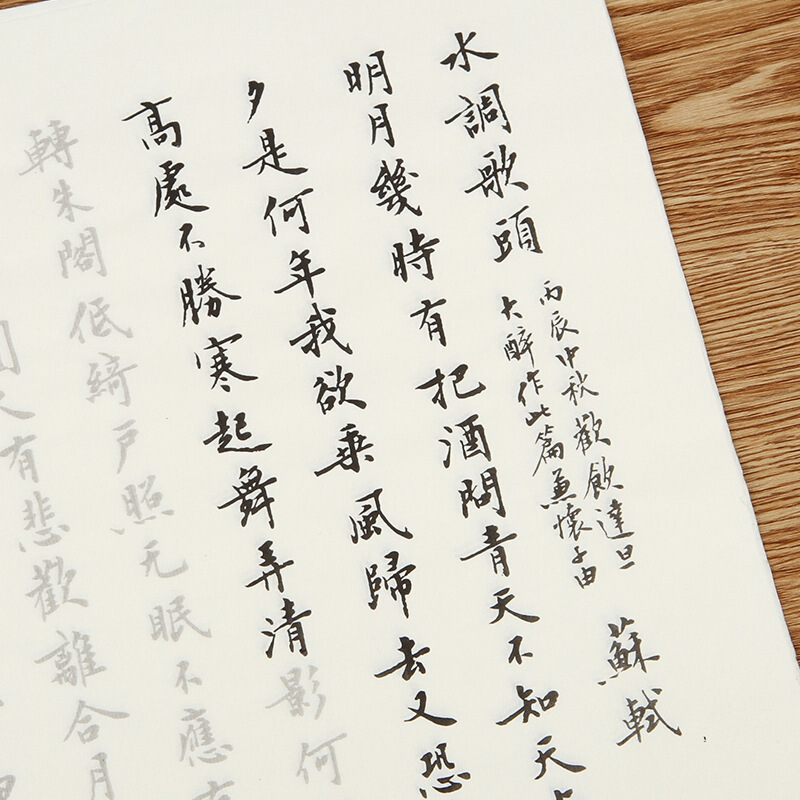 水調歌頭
丙辰中秋歡飲達旦
大醉作此篇兼懷子由
蘇軾
明月幾時有把酒問青天不知天
夕是何年我欲乘風歸去又恐
高處不勝寒起舞弄清影何
轉朱閣低綺戶照无眠不應有
人有悲歡離合月